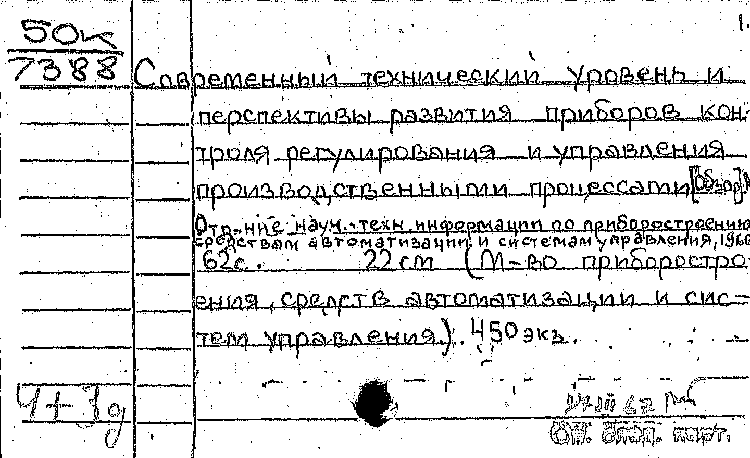 50к
7388 Современный технический уровень и
перспективы развития приборов кон-
троля регулирования и управления
производственными процессами [Обзор]
Отд-ние науч.-техн. информации по приборостроению
средствам автоматизации и системам управления, 196
62с. 22см (М-во приборостро-
ения, средств автоматизации и сис-
тем управления). 450 экз.
4+3д